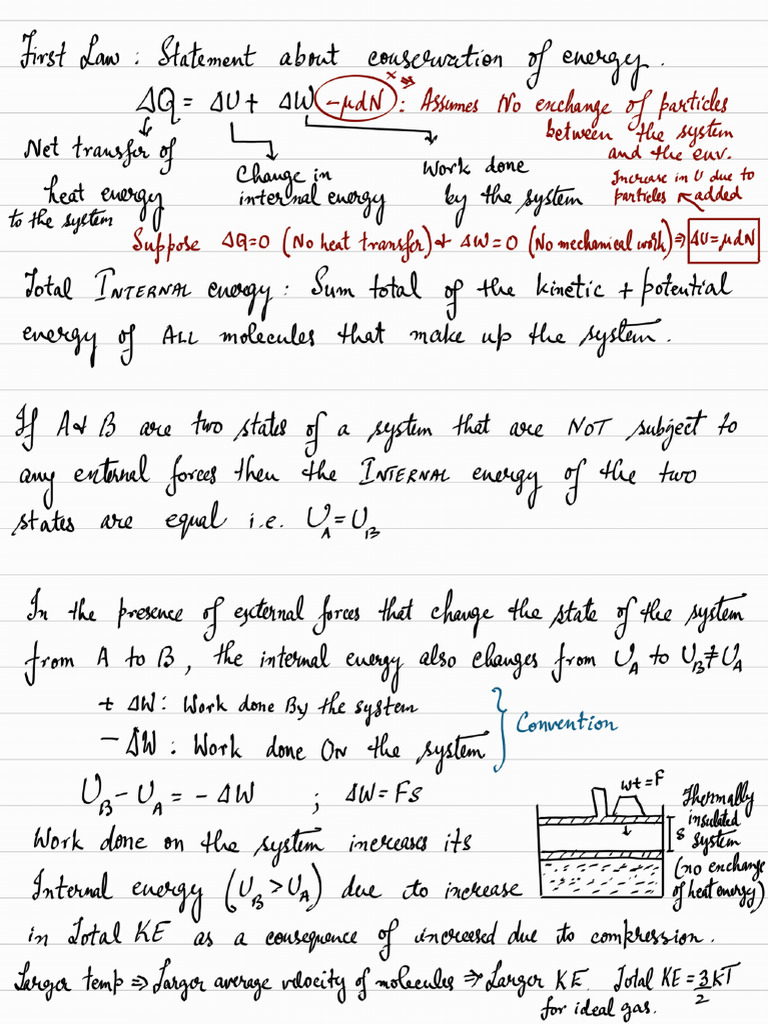 First Law : Statement about conservation of energy.
ΔQ = ΔU + ΔW -μdN x ⇒ : Assumes No exchange of particles
between the system
and the env.
Net transfer of
heat energy
to the system
Change in
internal energy
Work done
by the system
Increase in U due to
particles added
Suppose ΔQ=0 (No heat transfer) & ΔW=0 (No mechanical work) ⇒ ΔU=μdN
Total INTERNAL energy : Sum total of the kinetic + potential
energy of ALL molecules that make up the system.
If A & B are two states of a system that are NOT subject to
any external forces then the INTERNAL energy of the two
states are equal i.e. U_A = U_B
In the presence of external forces that change the state of the system
from A to B, the internal energy also changes from U_A to U_B ≠ U_A
+ ΔW : Work done By the system
- ΔW : Work done ON the system
Convention
U_B - U_A = - ΔW ; ΔW = Fs
wt = F
s
Thermally
insulated
system
(no exchange
of heat energy)
Work done on the system increases its
Internal energy (U_B > U_A) due to increase
in Total KE as a consequence of increased due to compression.
Larger temp ⇒ Larger average velocity of molecules ⇒ Larger KE. Total KE = 3/2 kT
for ideal gas.